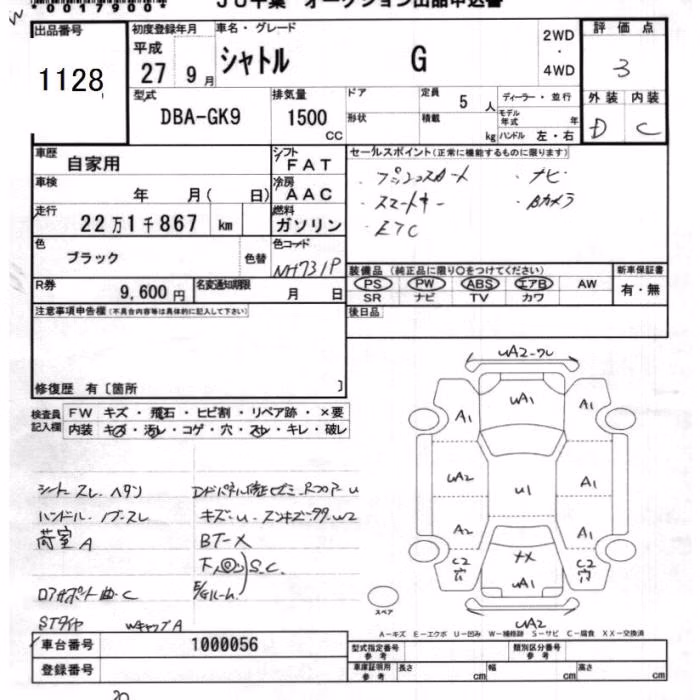 00179004
JU千葉 オークション出品申込書
出品番号
1128
初度登録年月
平成
27 9月
車名・グレード
シャトル G
2WD
・
4WD
評価点
3
外装 内装
D C
型式
DBA-GK9
排気量
1500
CC
ドア
形状
定員 5 人
積載 kg
ディーラー・並行
モデル年式 年
ハンドル 左・右
車歴 自家用
シフト FAT
車検 年 月( 日)
冷房 AAC
走行 22万1千867 km
燃料 ガソリン
色 ブラック 色替
色コード NH731P
R券 9,600円
名変通知期限 月 日
セールスポイント(正常に機能するものに限ります)
・プッシュスタート ・ナビ
・スマートキー ・Bカメラ
・ETC
装備品(純正品に限り○をつけてください)
PS PW ABS エアB AW
SR ナビ TV カワ
新車保証書
有・無
後日品
注意事項申告欄(不具合内容等は具体的に記入して下さい)
修復歴 有〔箇所 〕
検査員記入欄
FW キズ・飛石・ヒビ割・リペア跡・×要
内装 キズ・汚レ・コゲ・穴・スレ・キレ・破レ
シートスレ.ヘタリ
ハンドル.ノブ.スレ
荷室A
ロアサポート曲.C
STタイヤ
WキャップA
BT-X
下 S.C.
E/gルーム
UA2-ワレ
UA1
A1 A1
UA2 U1 A1
A2 A1
C2 穴
C2 穴
UA1
UA2
スペア
A-キズ E-エクボ U-凹み W-補修跡 S-サビ C-腐食 XX-交換済
車台番号 1000056
登録番号
型式指定番号 参考
類別区分番号 参考
車庫証明用 参考
長さ cm 幅 cm 高さ cm